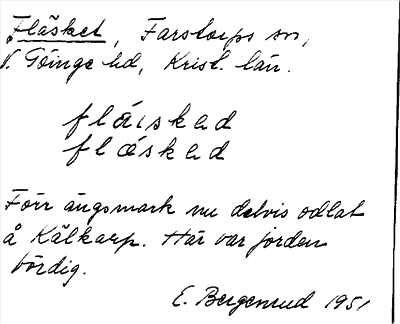 Fläsket, Farstorps sn,
V. Göinge hd, Krist. län.
fláiskad
flǻskad
Förr ängsmark nu delvis odlat
å Kälkarp. Här var jorden
bördig.
E. Bergenrud 1951